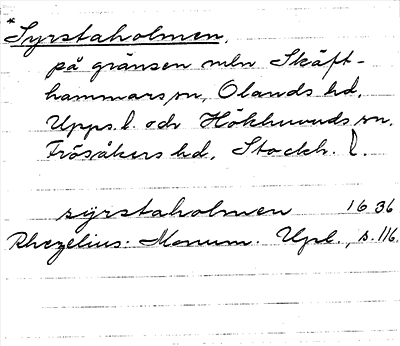 *
Syrstaholmen,
på gränsen mln Skäft-
hammars sn, Olands hd,
Upps. l. och Hökhuvuds sn.
Frösåkers hd, Stockh. l.
syrstaholmen 1636
Rhezelius: Monum. Upl., s. 116.